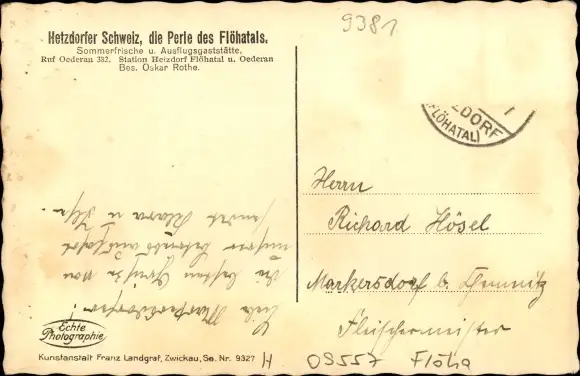 9381
Hetzdorfer Schweiz, die Perle des Flöhatals.
Sommerfrische u. Ausflugsgaststätte.
Ruf Oederan 382. Station Hetzdorf Flöhatal u. Oederan
Bes. Oskar Rothe.
ZDORF
(FLÖHATAL)
Herrn
Richard Hösel
Markersdorf b. Chemnitz
Fleischermeister
Liebe
die besten Grüße von
unserer
sendet Klara u.
Echte
Photographie
Kunstanstalt Franz Landgraf, Zwickau, Sa. Nr. 9327
H 09557 Flöha